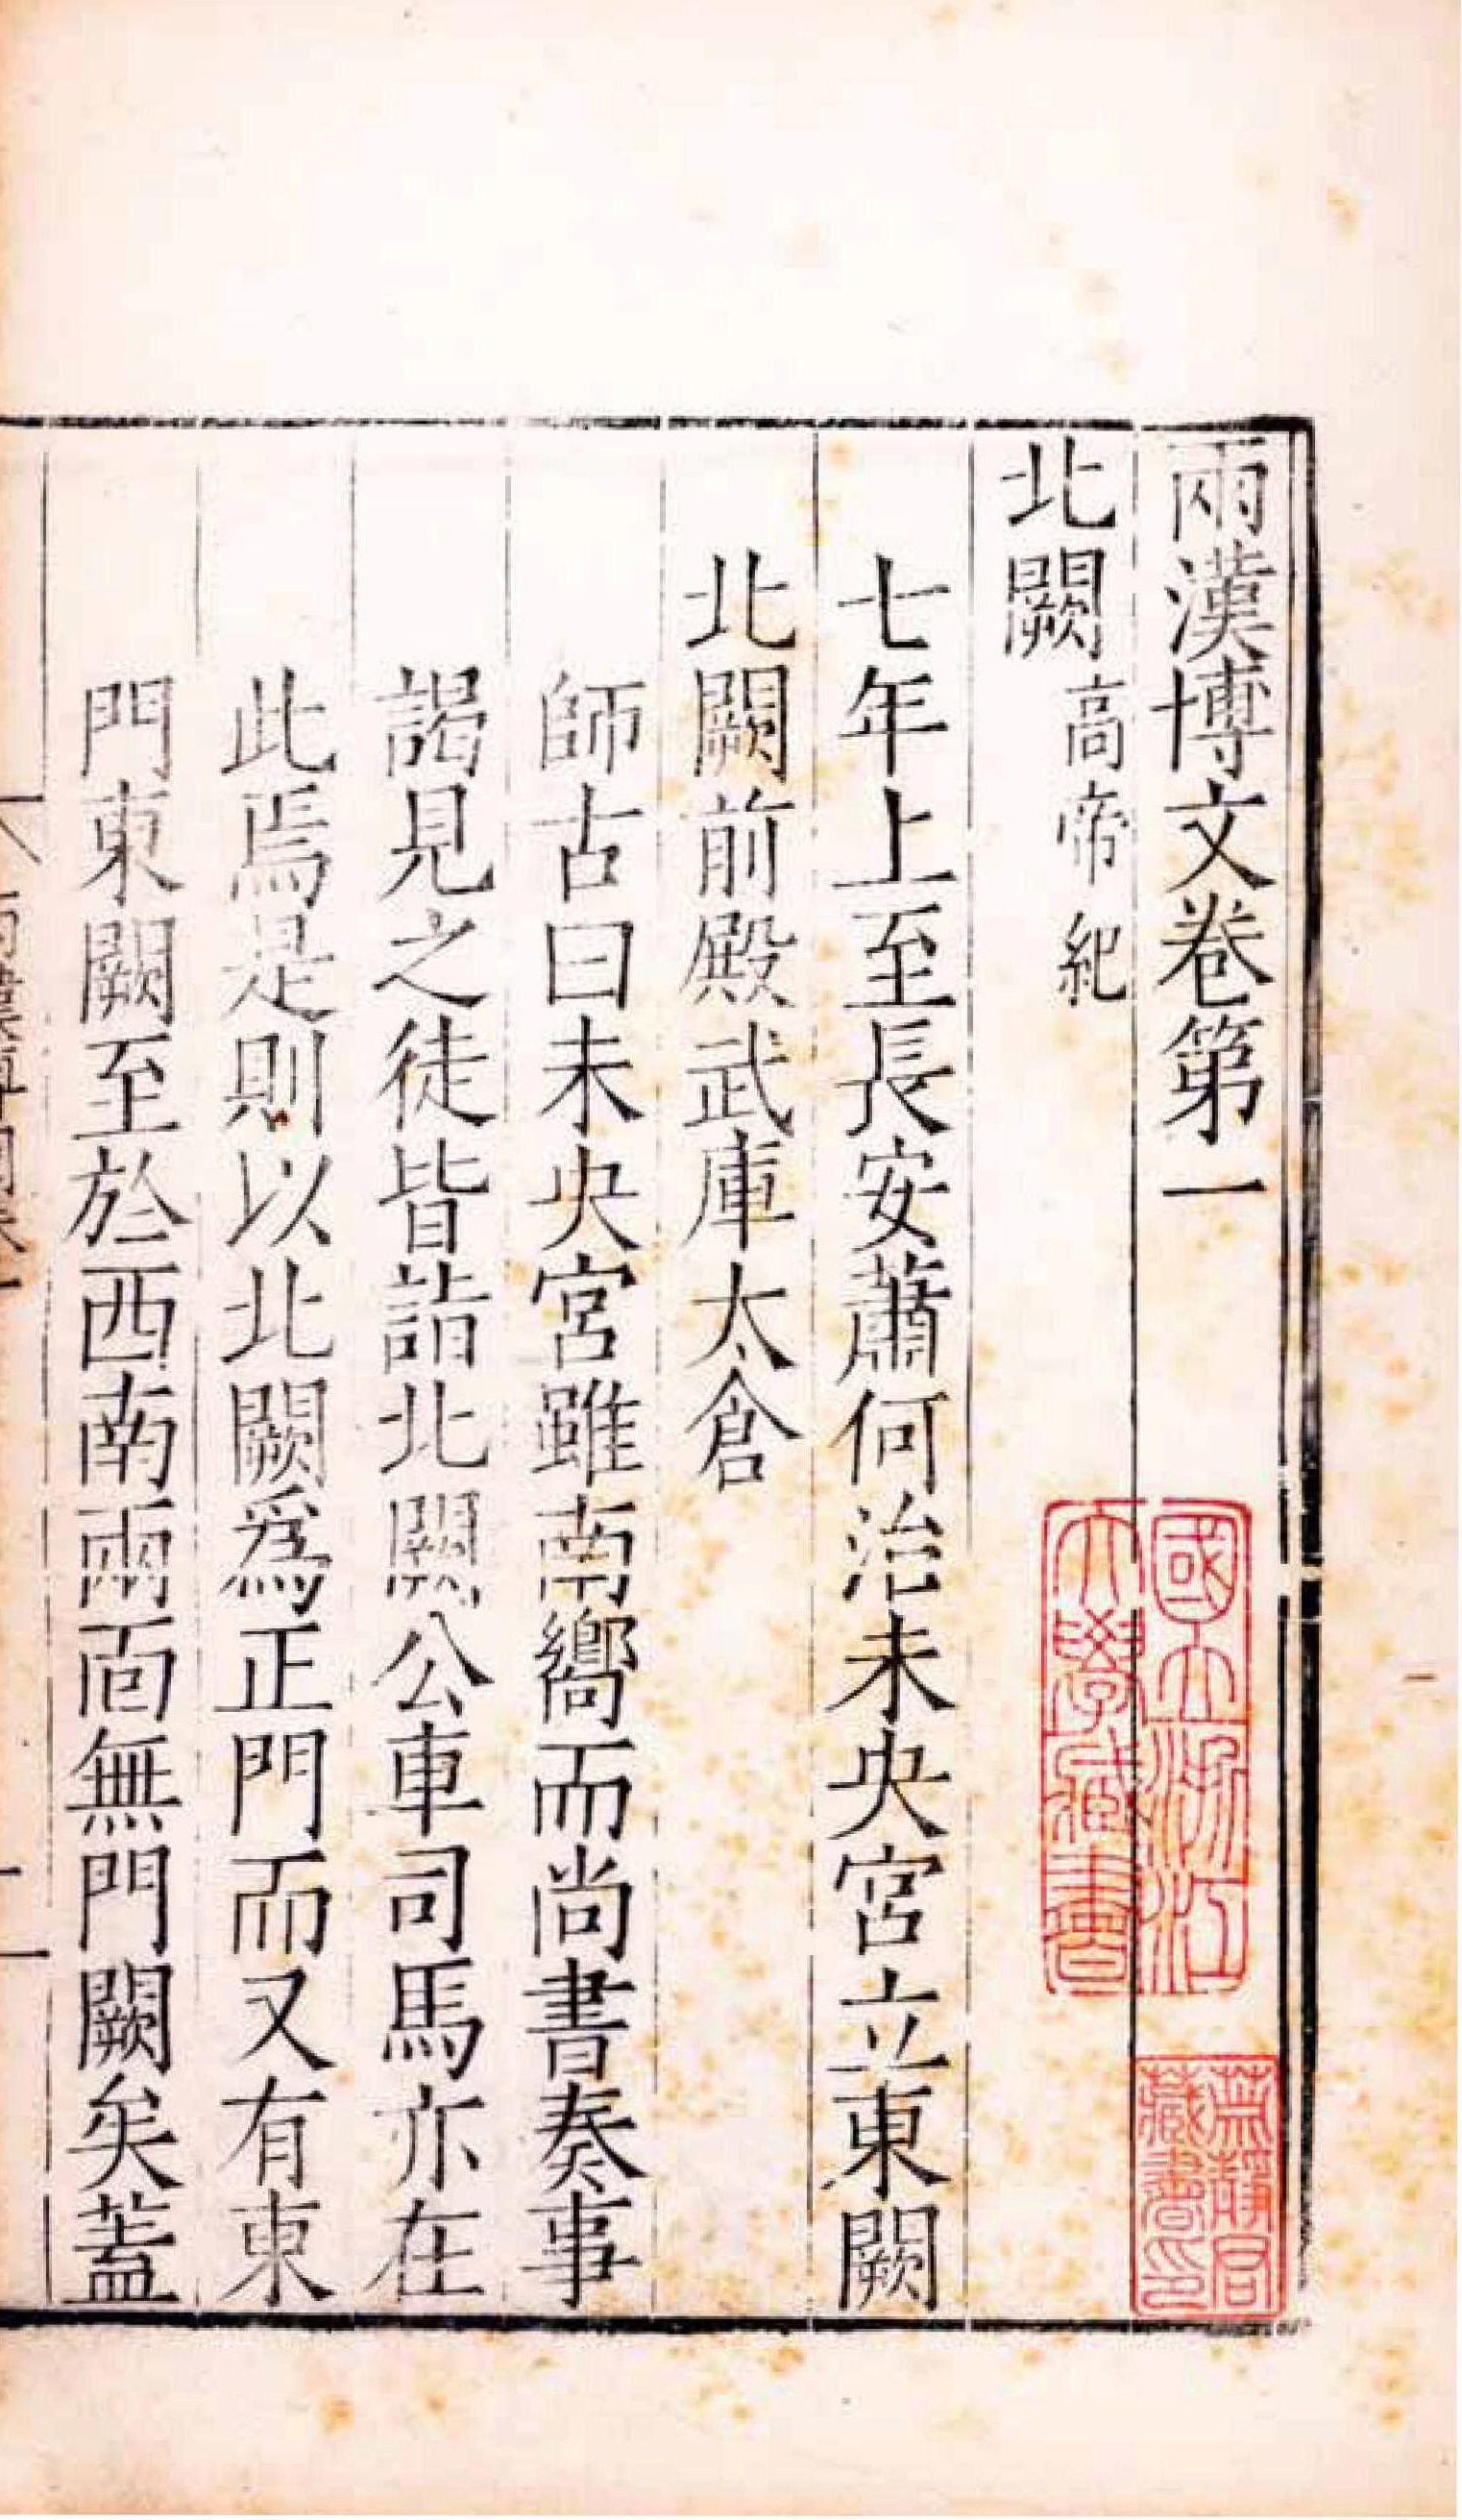 兩漢博文卷第一
北闕高帝紀
七年上至長安蕭何治未央宮立東闕
北闕前殿武庫太倉
師古曰未央宮雖南嚮而尚書奏事
謁見之徒皆詣北闕公車司馬亦在
此焉是則以北闕爲正門而又有東
門東闕至於西南兩面無門闕矣蓋
國立浙江
大學藏書
藏書印